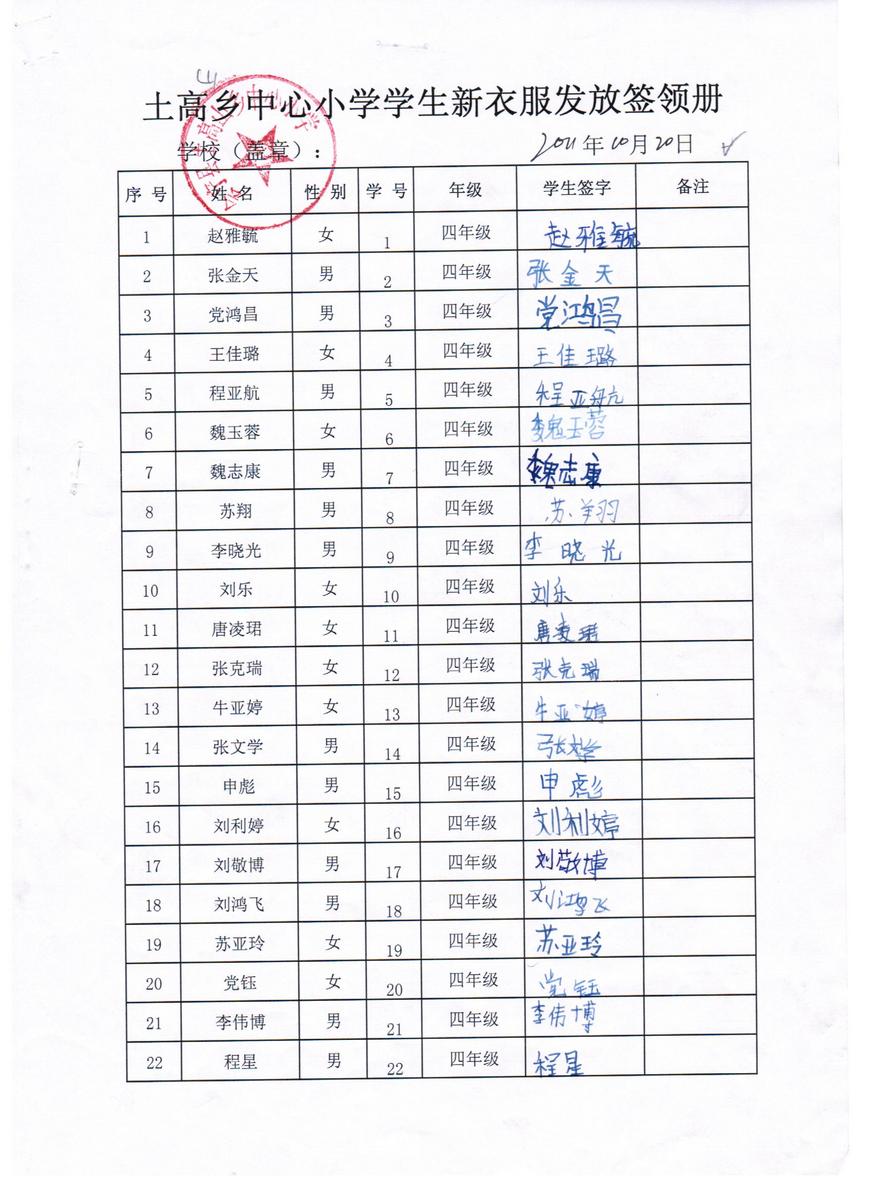 土高乡中心小学学生新衣服发放签领册
学校（盖章）： 2011年10月20日
序号 姓名 性别 学号 年级 学生签字 备注
1 赵雅毓 女 1 四年级 赵雅毓
2 张金天 男 2 四年级 张金天
3 党鸿昌 男 3 四年级 党鸿昌
4 王佳璐 女 4 四年级 王佳璐
5 程亚航 男 5 四年级 程亚航
6 魏玉蓉 女 6 四年级 魏玉蓉
7 魏志康 男 7 四年级 魏志康
8 苏翔 男 8 四年级 苏翔
9 李晓光 男 9 四年级 李晓光
10 刘乐 女 10 四年级 刘乐
11 唐凌珺 女 11 四年级 唐凌珺
12 张克瑞 女 12 四年级 张克瑞
13 牛亚婷 女 13 四年级 牛亚婷
14 张文学 男 14 四年级 张文学
15 申彪 男 15 四年级 申彪
16 刘利婷 女 16 四年级 刘利婷
17 刘敬博 男 17 四年级 刘敬博
18 刘鸿飞 男 18 四年级 刘鸿飞
19 苏亚玲 女 19 四年级 苏亚玲
20 党钰 女 20 四年级 党钰
21 李伟博 男 21 四年级 李伟博
22 程星 男 22 四年级 程星